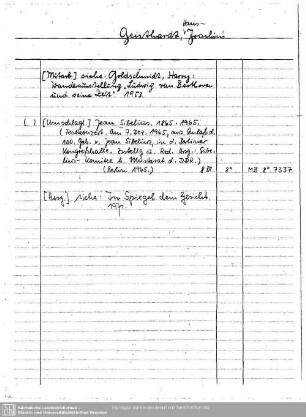 Hans-
Geisthardt, Joachim
[Mitarb.] siehe: Goldschmidt, Harry:
Wanderausstellung. Ludwig van Beethoven
und seine Zeit. 1953
( ) [Umschlagt.] Jean Sibelius. 1865-1965.
(Festkonzert. Am 7. Dez. 1965, aus Anlaß d.
100. Geb. v. Jean Sibelius, in d. Berliner
Kongreßhalle. Zstellg u. Red. Hrsg.: Sibe-
lius-Komitee b. Musikrat d. DDR.)
(Berlin 1965.) 8° MB 8° 7337
[Hrsg.] siehe: Im Spiegel dem Gesicht.
197
Sächsische Landesbibliothek -
Staats- und Universitätsbibliothek Dresden